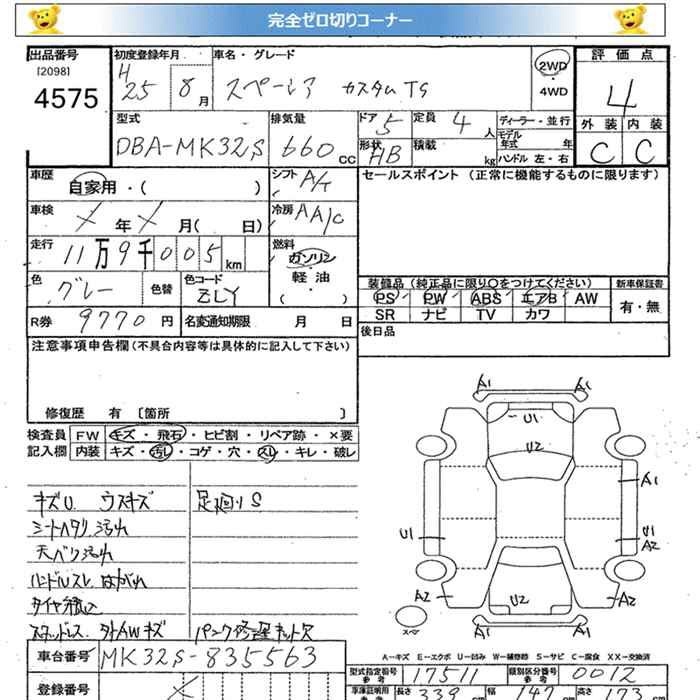 完全ゼロ切りコーナー
出品番号 初度登録年月 車名・グレード 評価点
[2098] H 2WD
4575 25 8月 スペーシア カスタムTS ・ 4
4WD
型式 排気量 ドア 5 定員 4人 ディーラー・並行 外装 内装
DBA-MK32S 660cc 形状 HB 積載 kg モデル年式 年 C C
ハンドル 左・右
車歴 自家用・( ) シフト A/T セールスポイント (正常に機能するものに限ります)
車検 ✓年✓月( 日) 冷房 AA/C
走行 11万9千005km 燃料 ガソリン
軽油
( )
色 グレー 色替 色コード ZLY
装備品(純正品に限り○をつけてください) 新車保証書
PS PW ABS エアB AW 有・無
SR ナビ TV カワ
R券 9770円 名変通知期限 月 日 後日品
注意事項申告欄(不具合内容等は具体的に記入して下さい)
修復歴 有 〔箇所 〕
検査員 FW キズ・飛石・ヒビ割・リペア跡・×要
記入欄 内装 キズ・汚レ・コゲ・穴・スレ・キレ・破レ
キズU ウスキズ 足廻りS
シートヘタリ 汚れ
天ベリ汚れ
ハンドルスレ はがれ
タイヤ積込
スタッドレス 外AWキズ パンク修理キット欠
A1 A1
U1
U2
A1
U1 U1
A2
A2 A2
U2
スペア A1 A1
A-キズ E-エクボ U-凹み W-補修跡 S-サビ C-腐食 XX-交換済
車台番号 MK32S-835563
型式指定番号 参考 17511 類別区分番号 参考 0012
登録番号 ✓ 車庫証明用 参考 長さ 339cm 幅 147cm 高さ 173cm